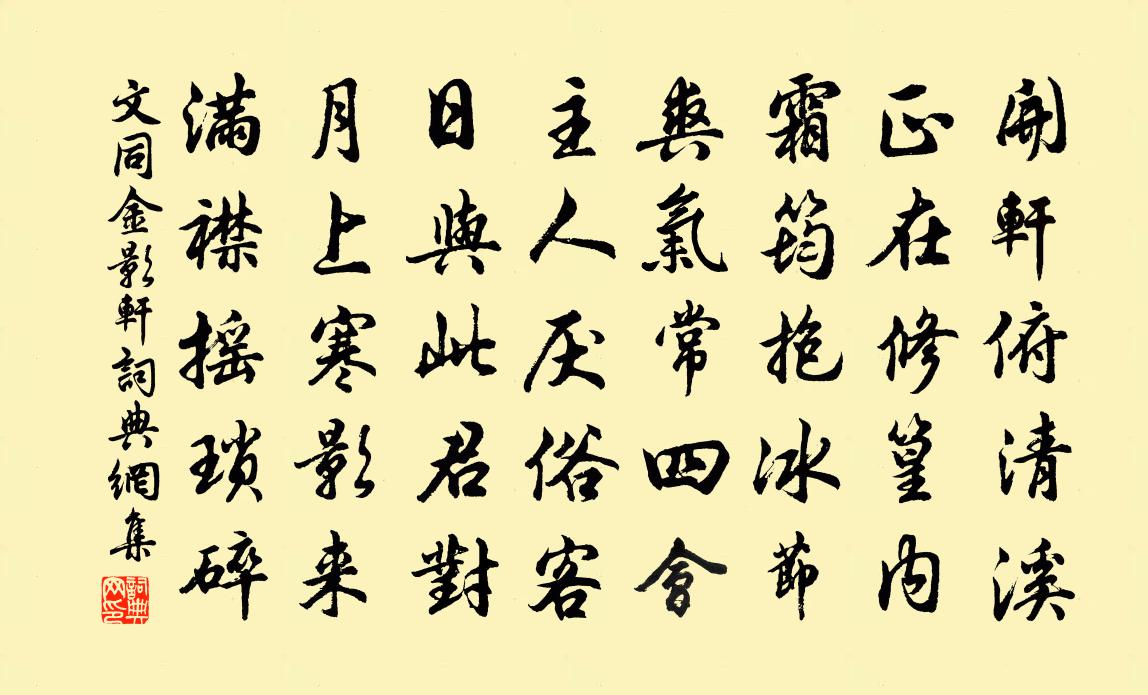 開軒俯清溪
正在修篁內
霜筠抱冰節
爽氣常四會
主人厌俗客
日與此君對
月上寒影来
滿襟摇瑣碎
文同金影軒詞典網集
詞典網印